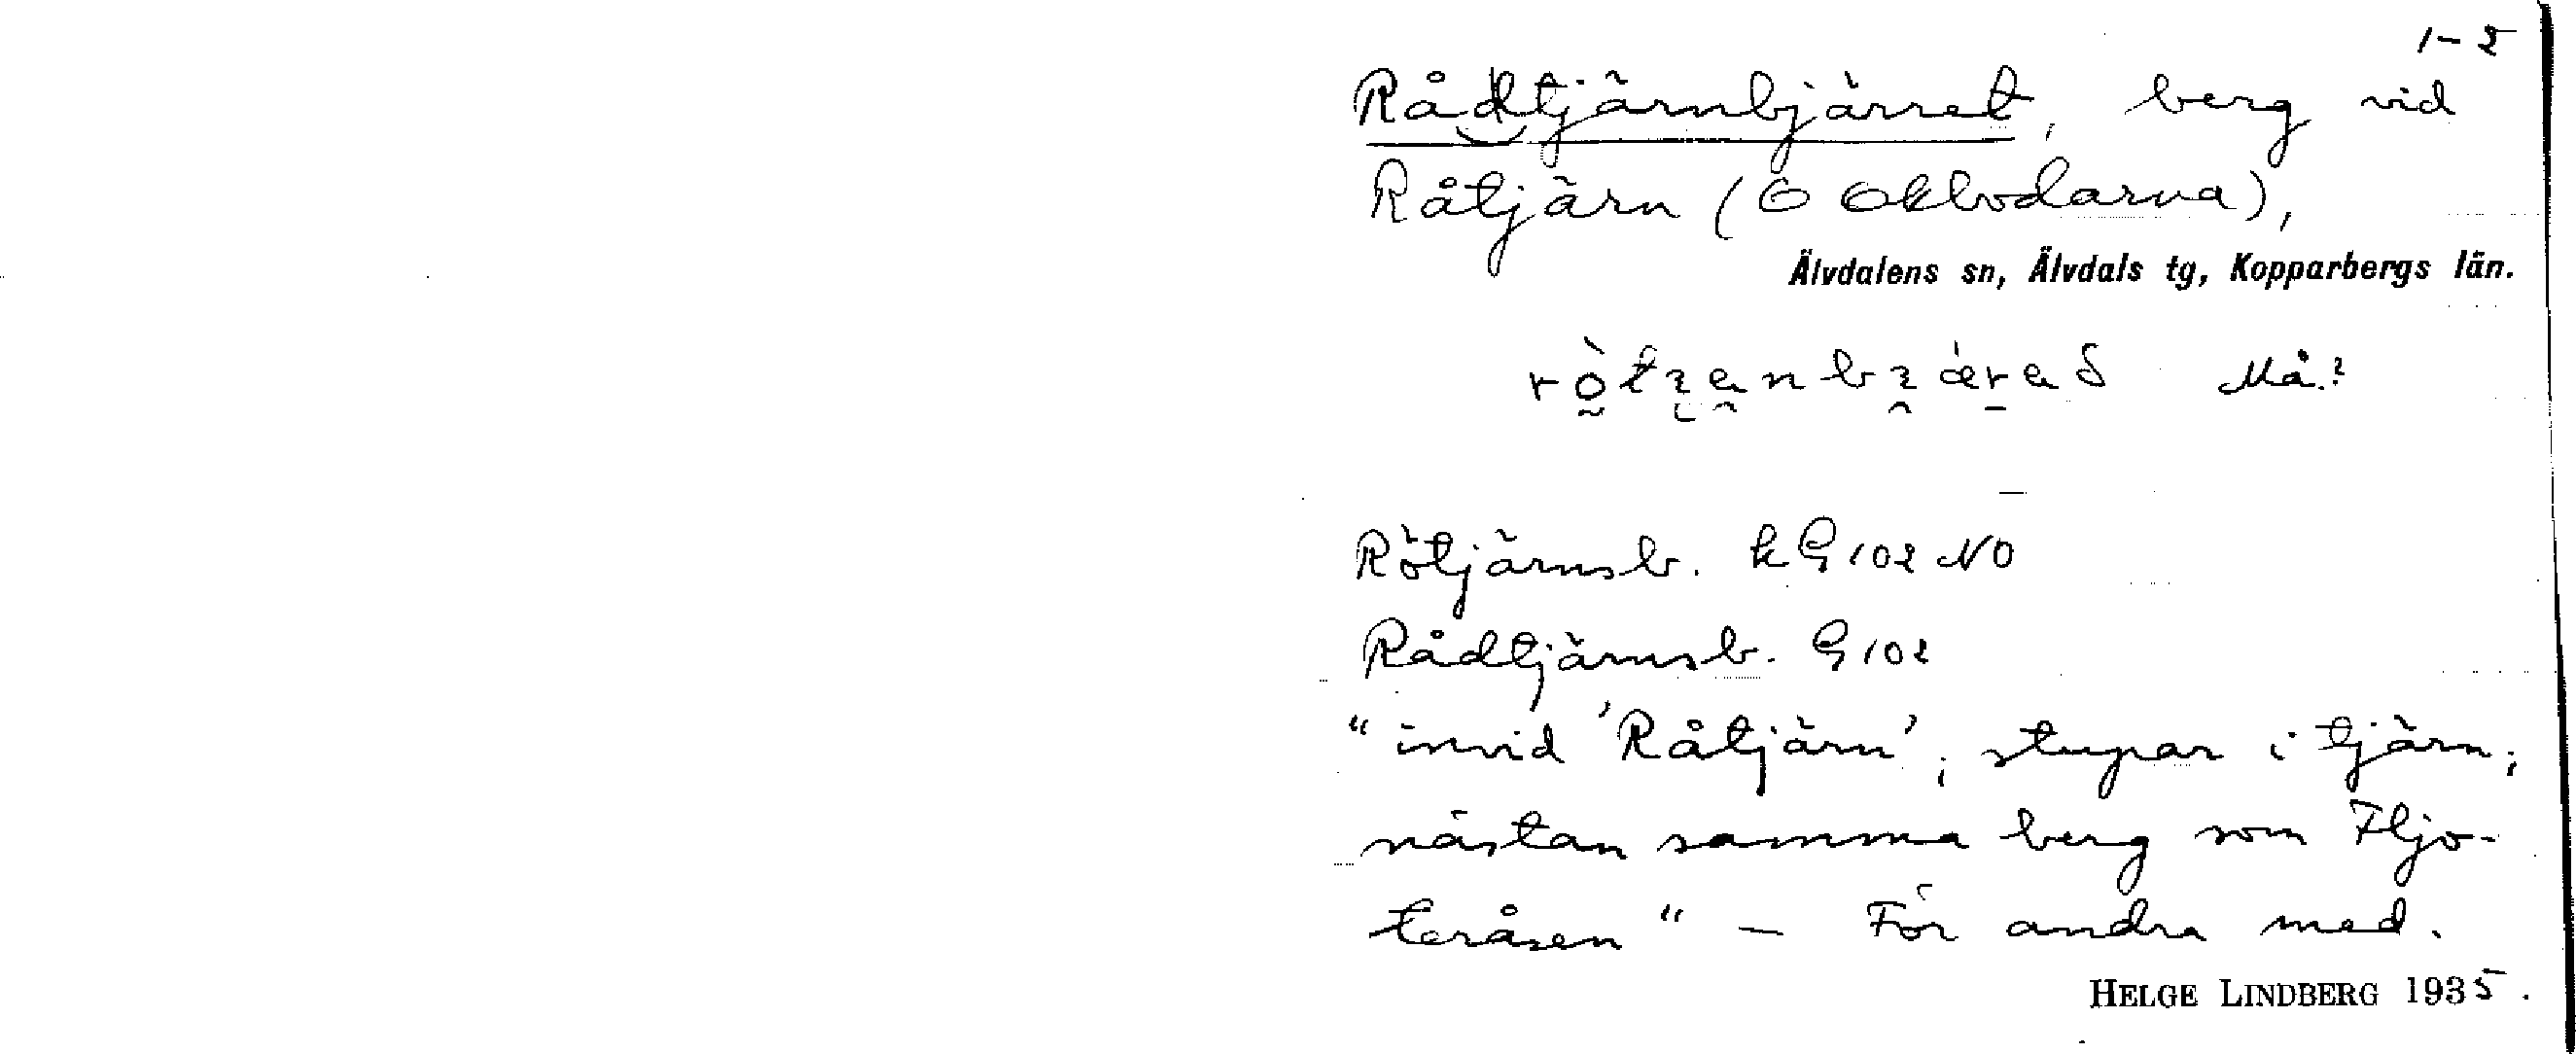 1-2
Rådtjärnbjärret, berg vid
Råtjärn (Ö Okbodarna),
Älvdalens sn, Älvdals tg, Kopparbergs län.
Må?
Rötjärnsb. kG102 NO
Rådtjärnsb. G102
"invid 'Råtjärn'; stupar i tjärn;
nästan samma berg som Fljo-
teråsen" – För andra med.
HELGE LINDBERG 1935.